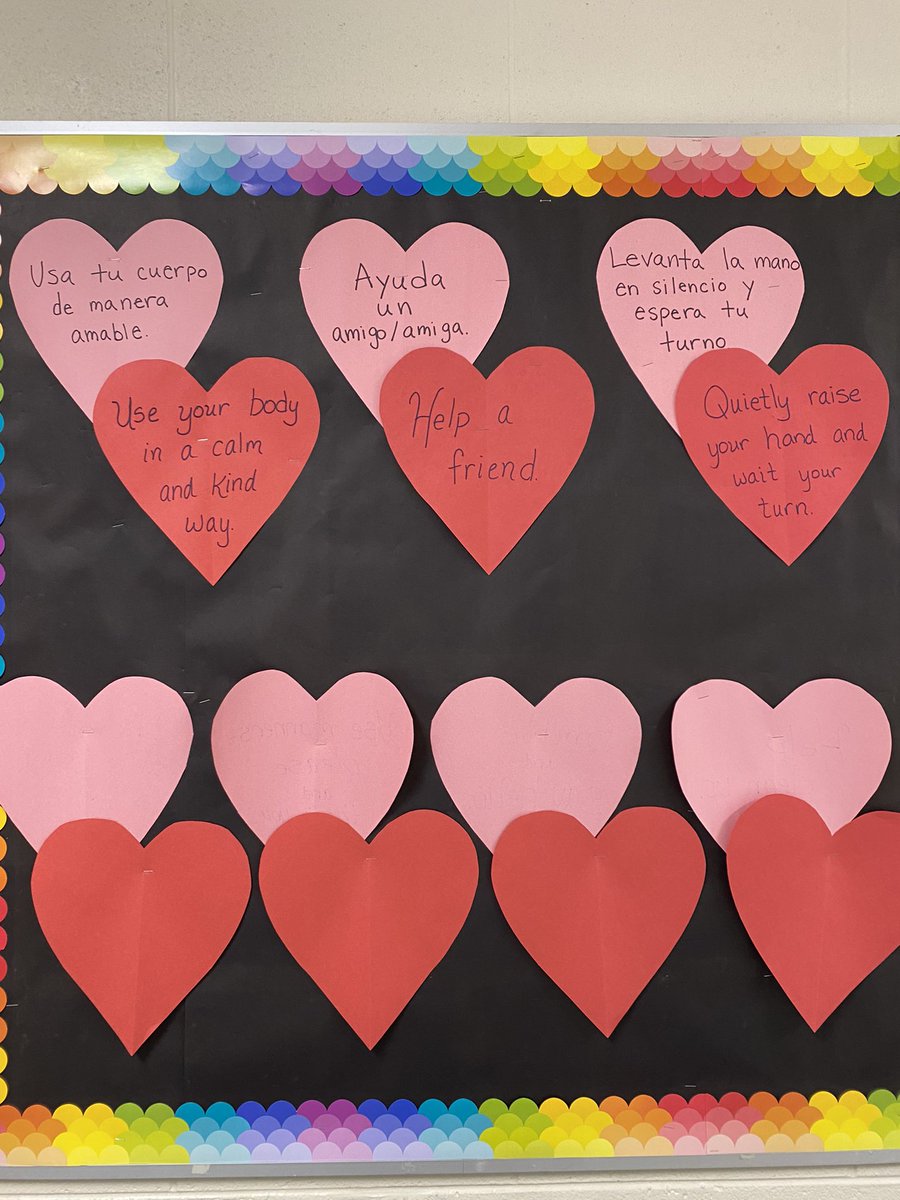 Usa tu cuerpo
de manera
amable.
Use your body
in a calm
and kind
way.
Ayuda
un
amigo/amiga.
Help a
friend.
Levanta la mano
en silencio y
espera tu
turno
Quietly raise
your hand and
wait your
turn.